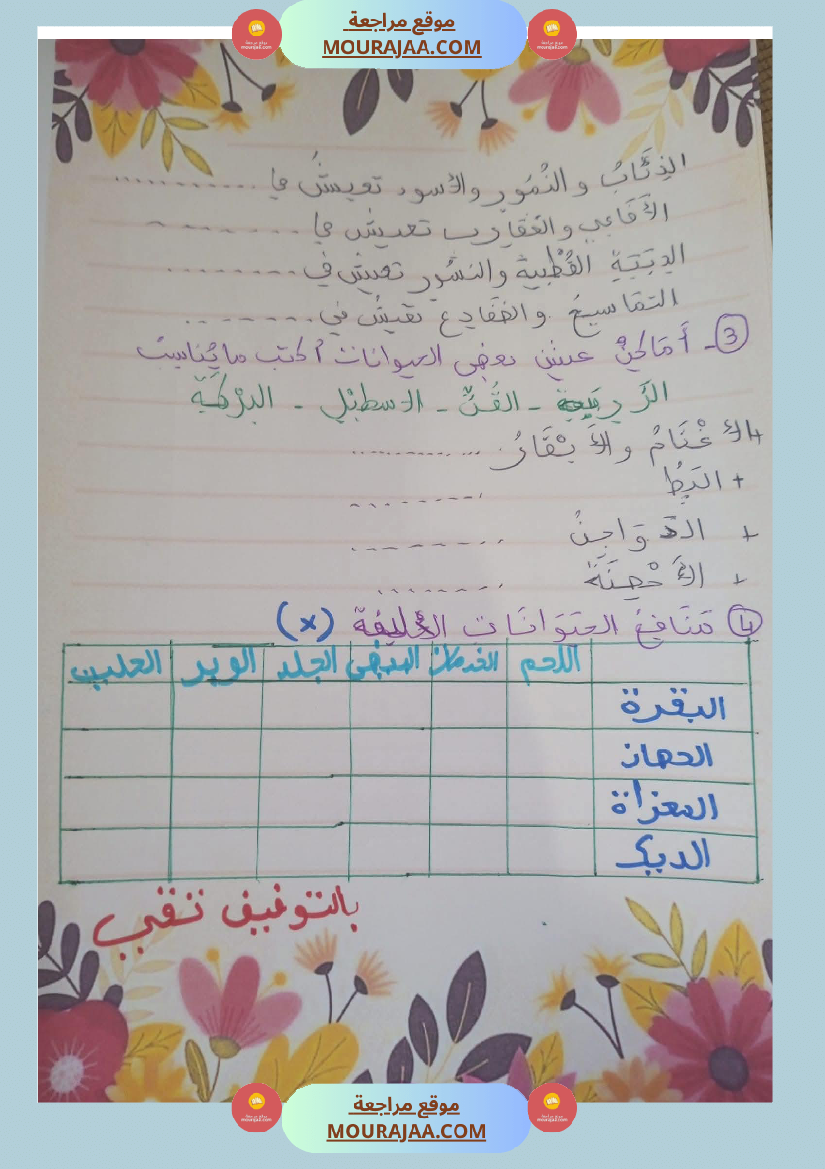 موقع مراجعة
MOURAJAA.COM
الذِئَابُ والنُمُور والأسود تعيشُ في ............
الأَفَاعِي والعَقَارب تعيش في ............
الدِبَبَةِ القُطْبِية والنسُور تعيش في ............
التمَاسيحُ والضَفَادِع تعيشُ في ............
3- أَمَاكِنُ عيش بعض الحيوانات أكتب ما يُناسبُ
الزَريبَة - القُنُّ - الاسطبْل - البرْكَةُ
+ الأغْنَامُ والأَبْقَارُ ............
+ البَطُ ............
+ الدَوَاجِنُ ............
+ الأَحْصِنَةُ ............
4 مَنَافِعُ الحَيَوَانَات الأليفة (x)
اللحم الخدمات البيض الجلد الوبر الحليب
البقرة
الحصان
المعزاة
الديك
بالتوفيق
موقع مراجعة
MOURAJAA.COM